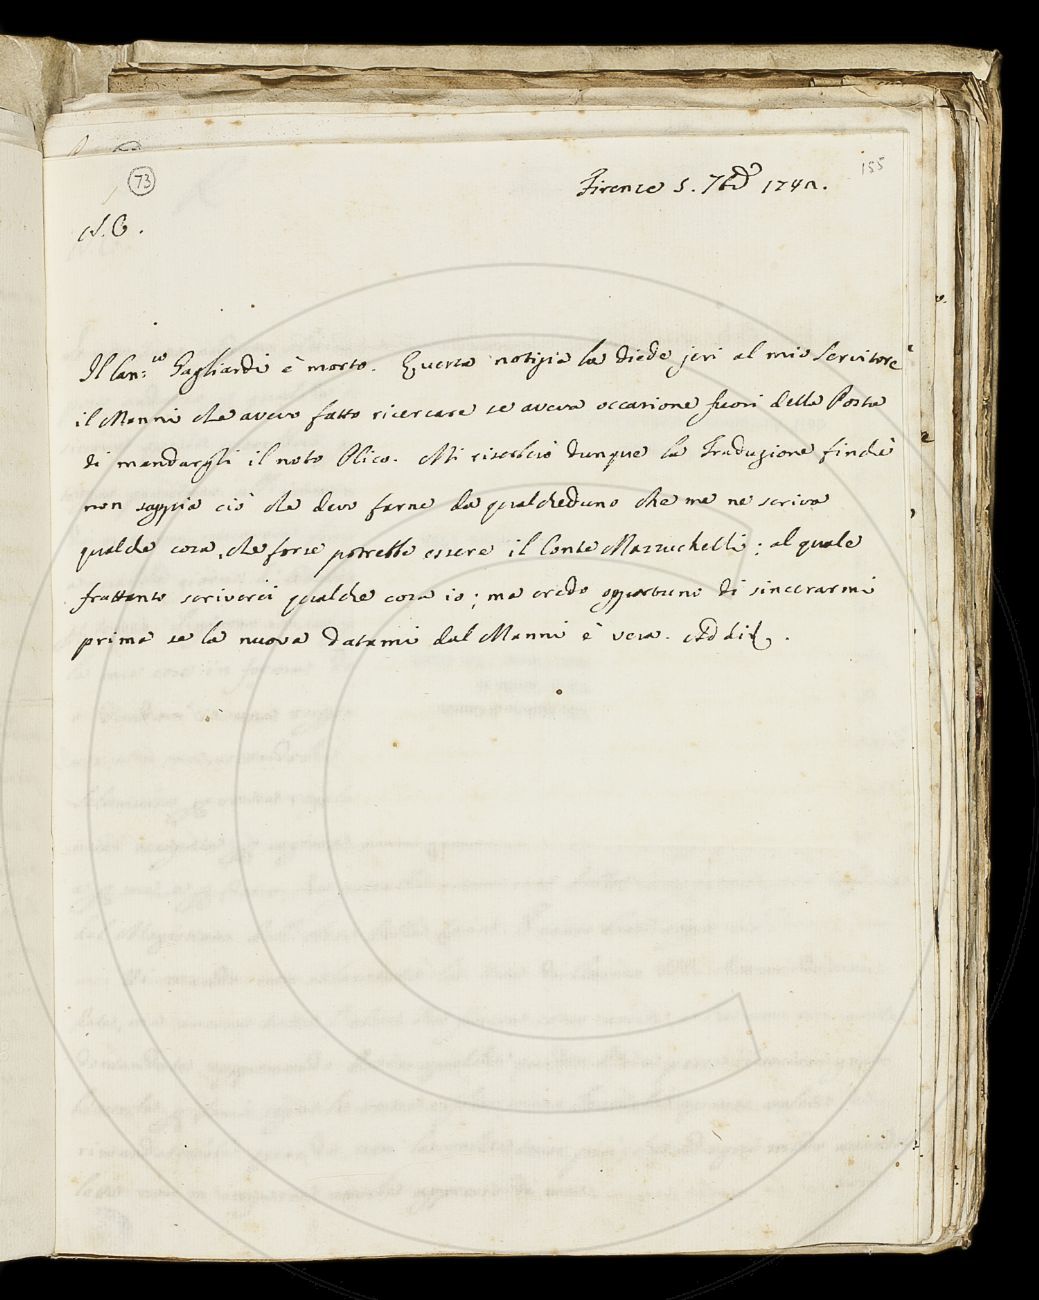 73
155
Firenze 5. 7bre 174
A. C.
Il Can:co Gagliardi è morto. Questa notizia la diede jeri al mio Servitore
il Manni che avevo fatto ricercare se aveva occasione fuori della Posta
di mandargli il noto Plico. Mi riserbo dunque la Traduzione finchè
non sappia ciò che devo farne da qualcheduno che me ne scriva
qualche cosa, che forse potrebbe essere il Conte Mazzuchelli; al quale
frattanto scriverei qualche cosa io; ma credo opportuno di sincerarmi
prima se la nuova datami dal Manni è vera. Addio.